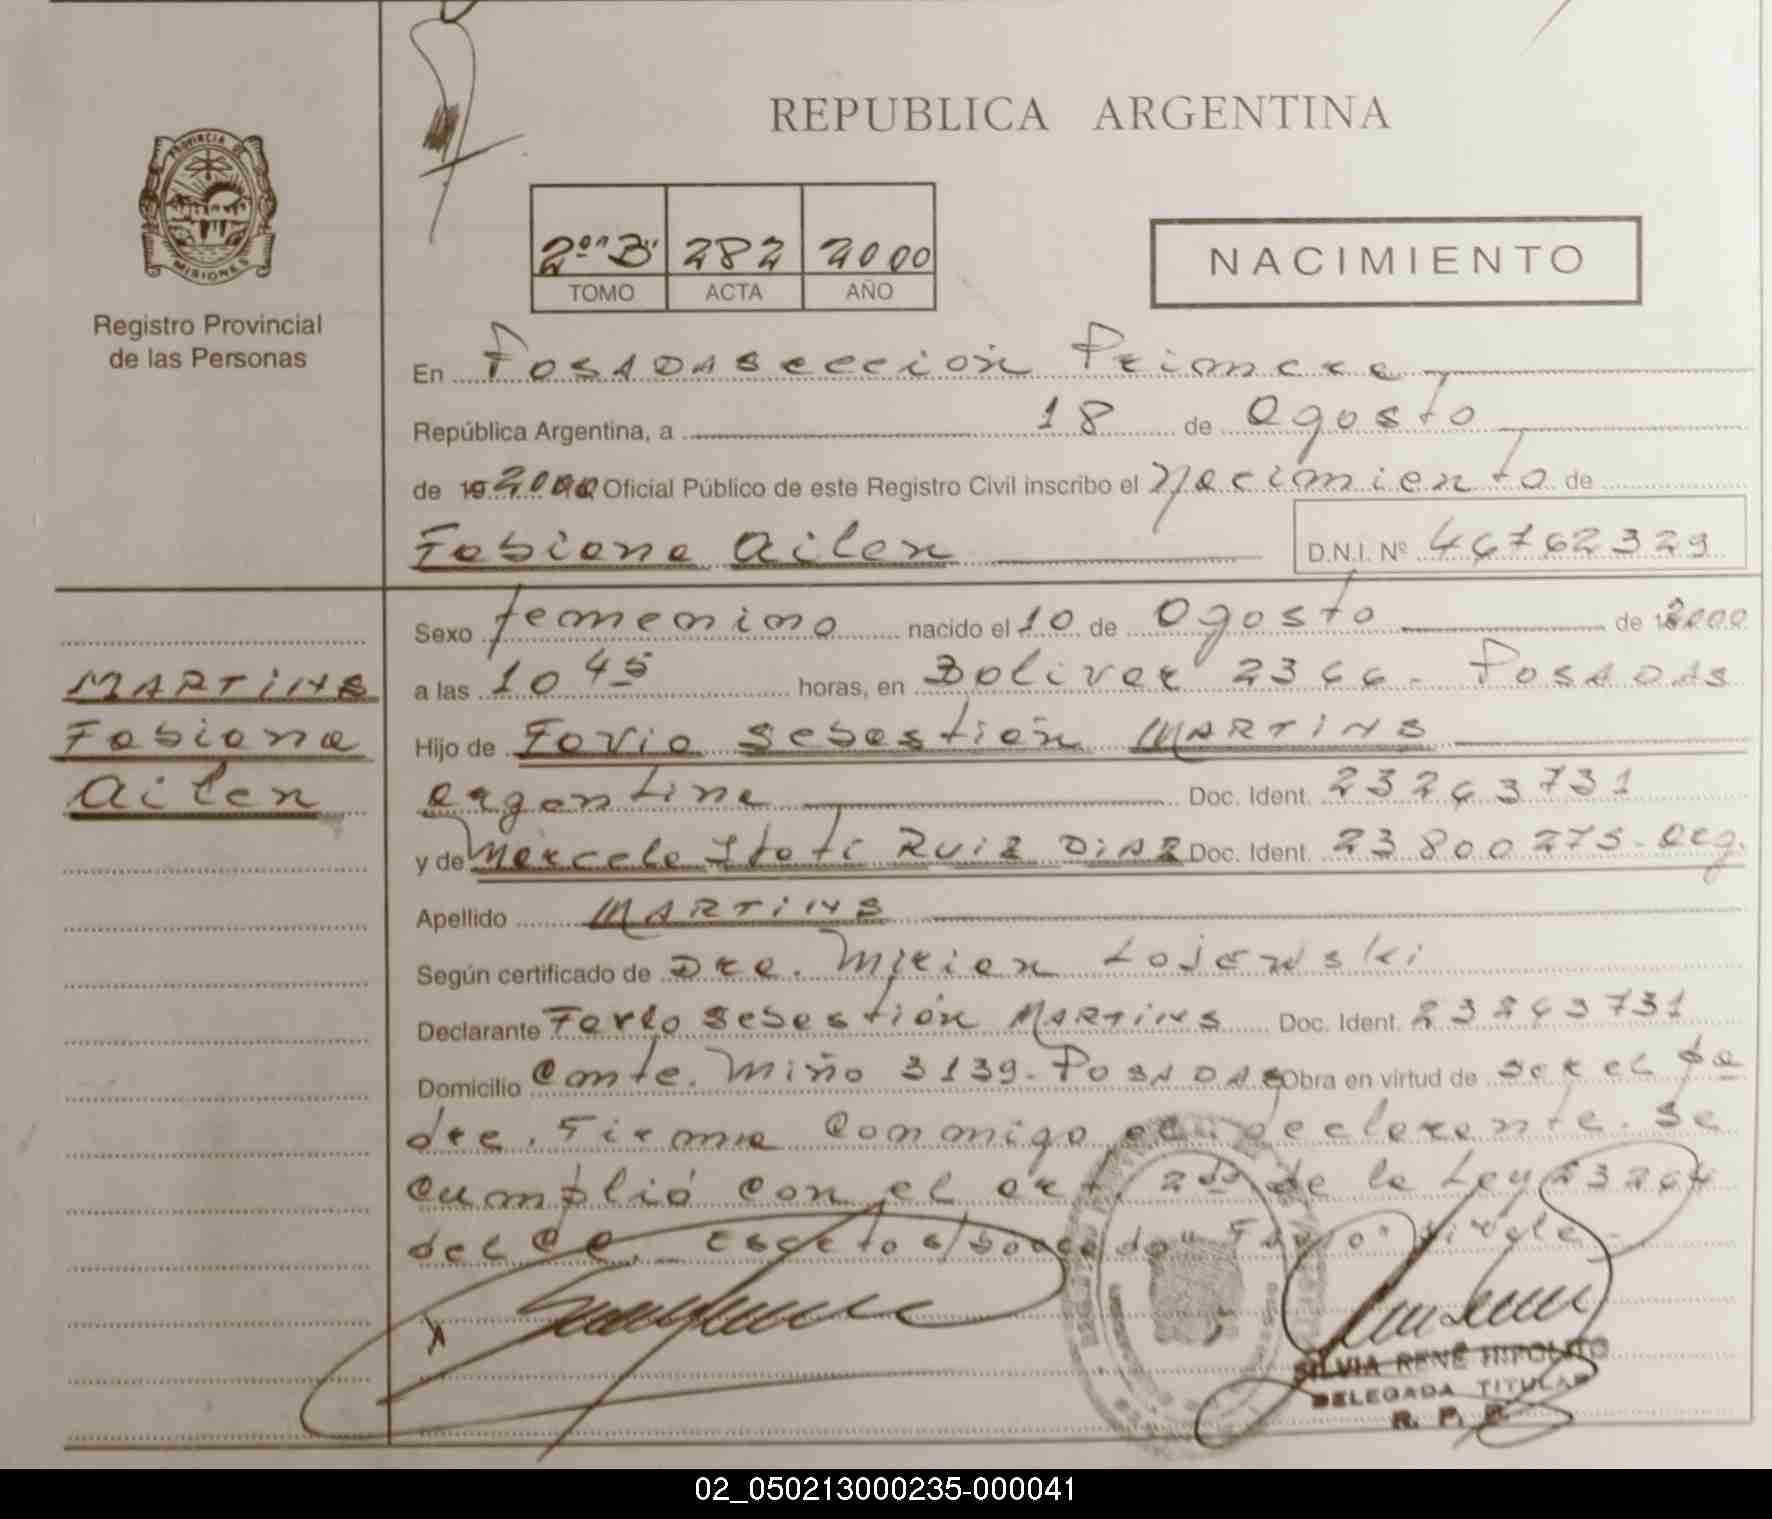 REPUBLICA ARGENTINA
PROVINCIA DE
MISIONES
Registro Provincial
de las Personas
2º "B" 282 2000
TOMO ACTA AÑO
NACIMIENTO
En Posadas Sección Primera
República Argentina, a 18 de Agosto
de 19 2000 Oficial Público de este Registro Civil inscribo el Nacimiento de
Fabiana Ailen D.N.I. Nº 46762329
Sexo femenino nacido el 10 de Agosto de 2000
MARTINS
Fabiana
Ailen
a las 10 45 horas, en Bolivar 2366 - Posadas
Hijo de Favio Sebastián MARTINS
argentina Doc. Ident. 23263731
y de Marcela Itatí RUIZ DIAZ Doc. Ident. 23800275 - Arg.
Apellido MARTINS
Según certificado de Dra. Mirian Lojewski
Declarante Favio Sebastián MARTINS Doc. Ident. 23263731
Domicilio Cmte. Miño 3139 - Posadas Obra en virtud de ser el pa
dre. Firma conmigo el declarante. Se
cumplió con el art. 2do de la Ley 23264
del CC. "Favio" Vale -
SILVIA RENÉ HIPOLITO
DELEGADA TITULAR
R. P. P.
02_050213000235-000041